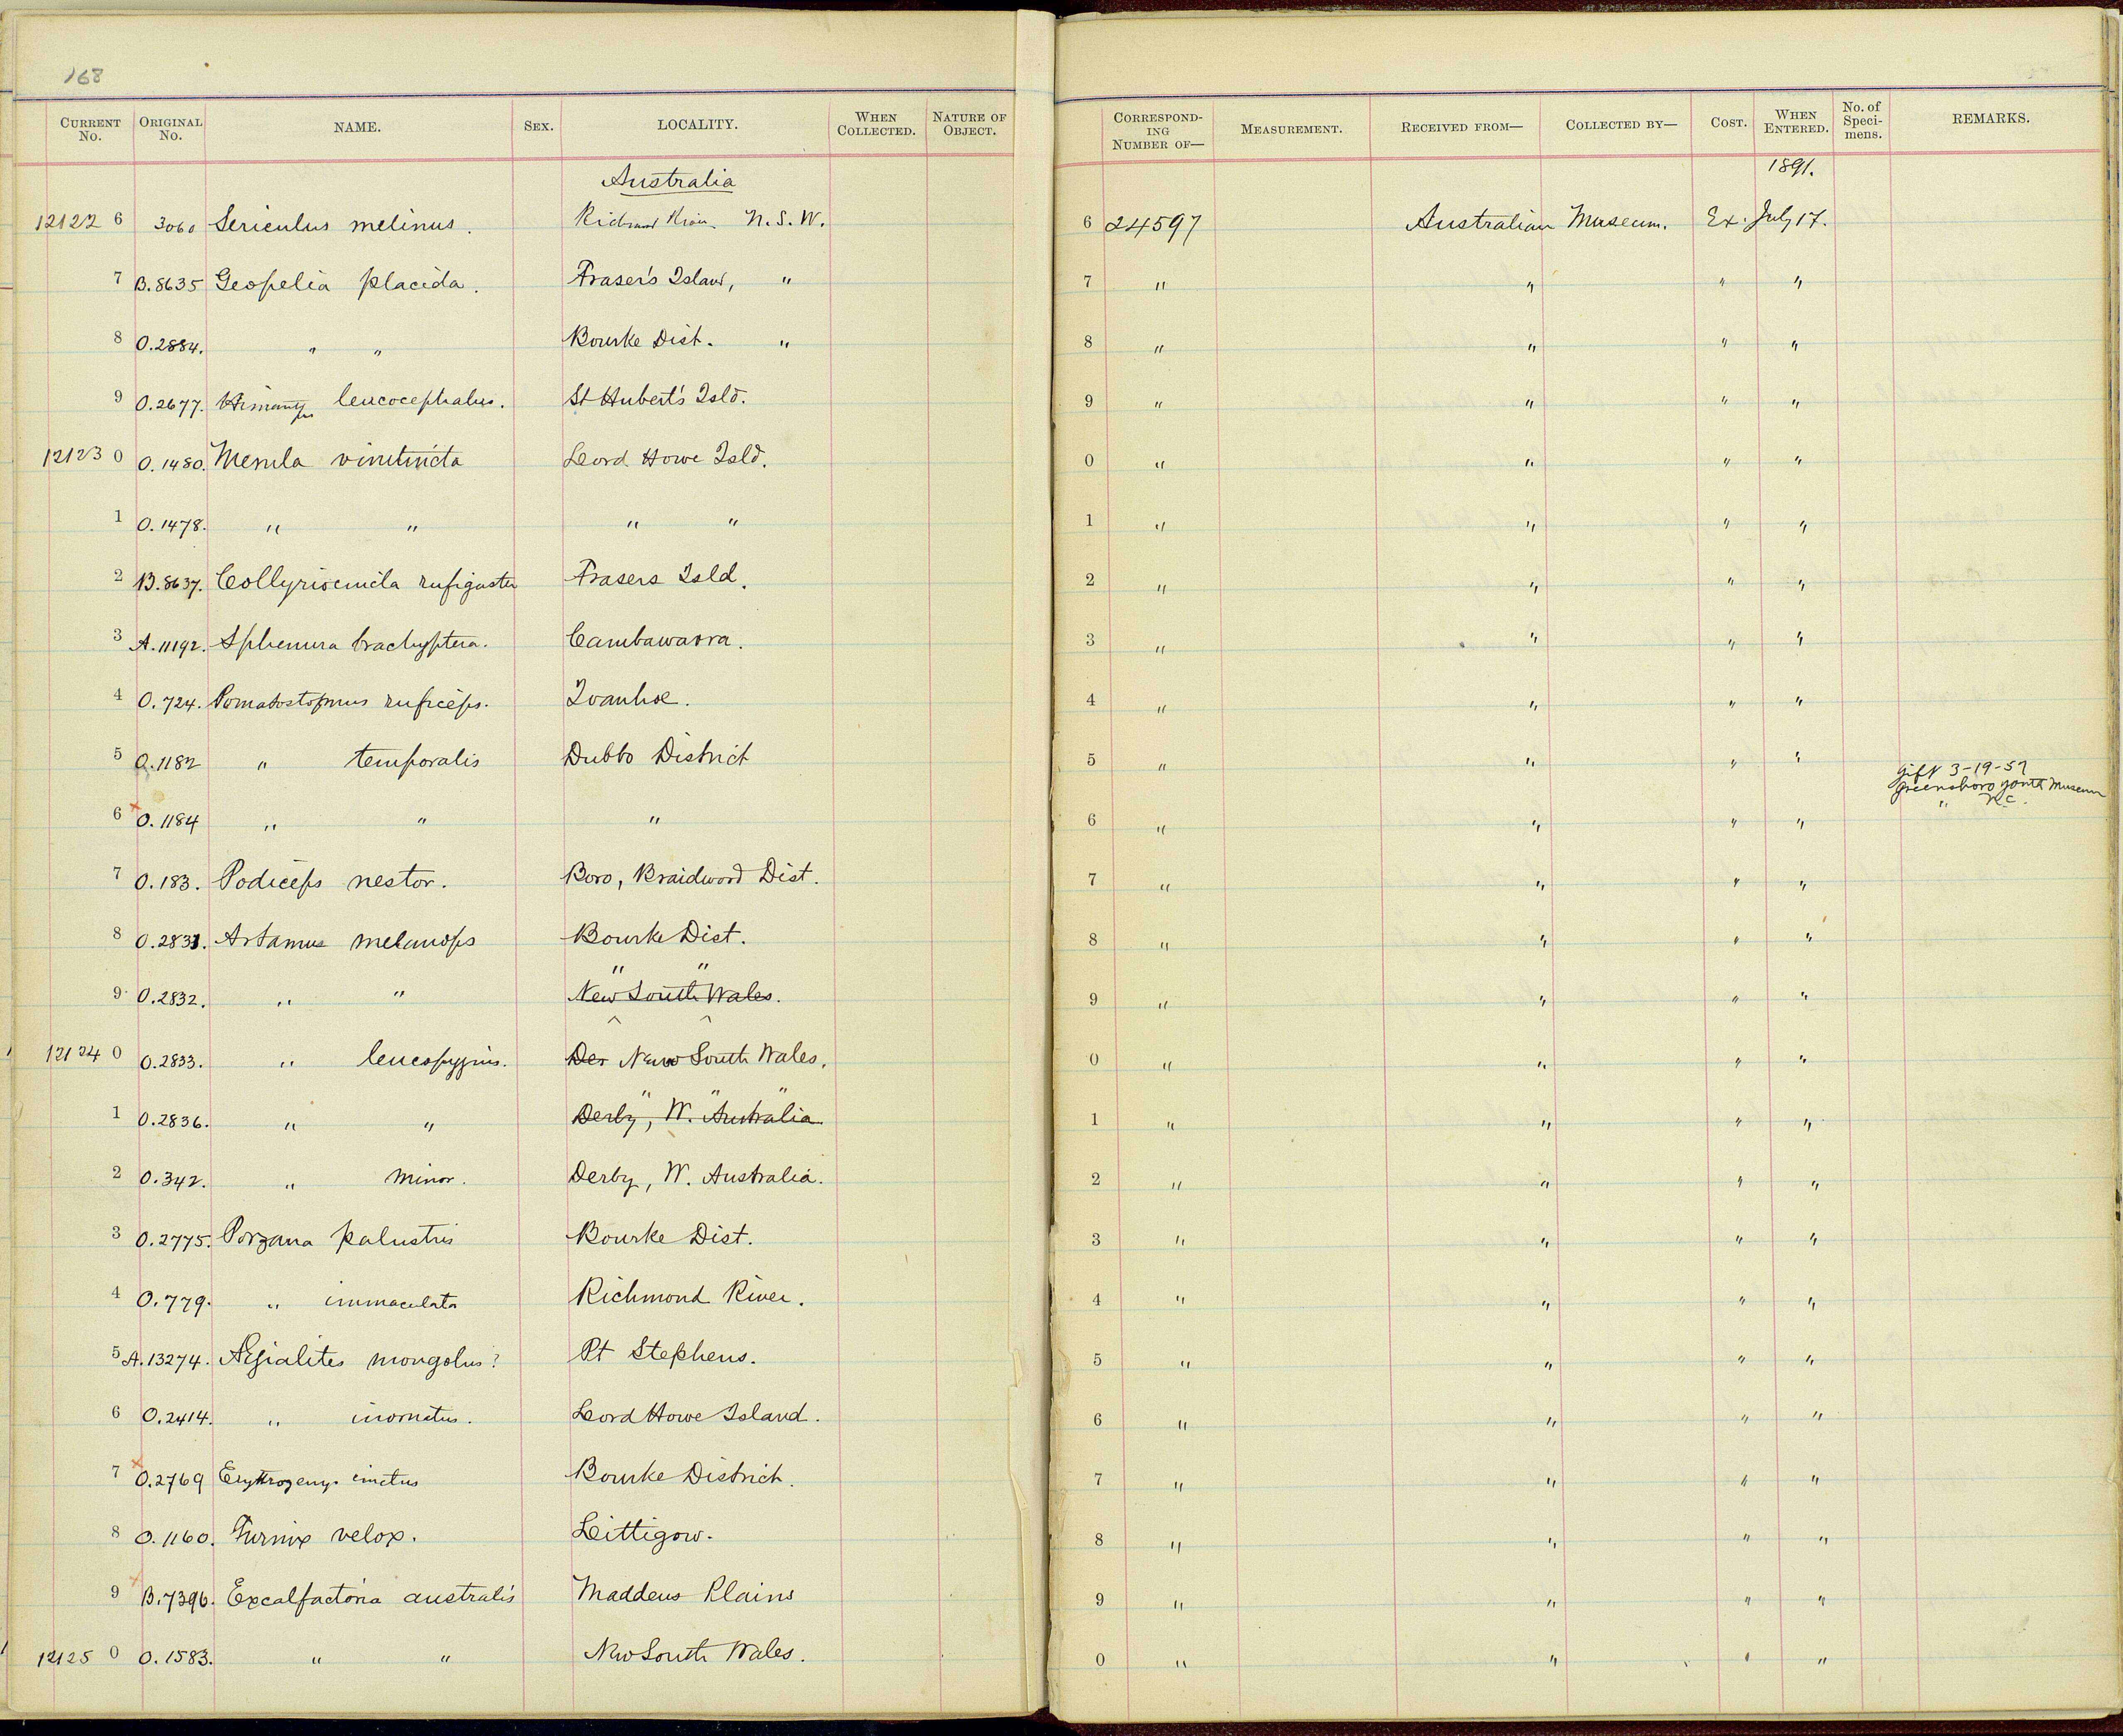 168
CURRENT No. ORIGINAL No. NAME. SEX. LOCALITY. WHEN COLLECTED. NATURE OF OBJECT. CORRESPONDING NUMBER OF— MEASUREMENT. RECEIVED FROM— COLLECTED BY— COST. WHEN ENTERED. No. of Specimens. REMARKS.
Australia 1891.
12122 6 3060 Sericulus melinus. Richmond River N.S.W. 6 24597 Australian Museum. Ex. July 17.
7 B.8635 Geopelia placida. Fraser's Island, " 7 " " " "
8 O.2884. " " Bourke Dist. " 8 " " " "
9 O.2677. leucocephalus. St Hubert's Isld. 9 " " " "
12123 0 O.1480. Merula vinitincta Lord Howe Isld. 0 " " " "
1 O.1478. " " " " 1 " " " "
2 B.8637. Collyriocincla rufigaster Frasers Isld. 2 " " " "
3 A.11192. Sphenura brachyptera. Cambawarra. 3 " " " "
4 O.724. Pomatostomus ruficeps. Ivanhoe. 4 " " " "
5 O.1182 " temporalis Dubbo District 5 " " " "
gift 3-19-57
Greensboro youth Museum
" N.C.
6 O.1184 " " " 6 " " " "
7 O.183. Podiceps nestor. Boro, Braidwood Dist. 7 " " " "
8 O.2831. Artamus melanops Bourke Dist. 8 " " " "
" "
9 O.2832. " " New South Wales. 9 " " " "
12124 0 O.2833. " leucopygius. Der New South Wales. 0 " " " "
" " "
1 O.2836. " " Derby, W. Australia 1 " " " "
2 O.342. " minor. Derby, W. Australia. 2 " " " "
3 O.2775. Porzana palustris Bourke Dist. 3 " " " "
4 O.779. " immaculata Richmond River. 4 " " " "
5 A.13274. Aegialites mongolus? Pt Stephens. 5 " " " "
6 O.2414. " inornatus. Lord Howe Island. 6 " " " "
7 O.2769 Erythrogenys cinctus Bourke District. 7 " " " "
8 O.1160. Turnix velox. Littigow. 8 " " " "
9 B.7396. Excalfactoria australis Maddens Plains 9 " " " "
12125 0 O.1583. " " New South Wales. 0 " " " "